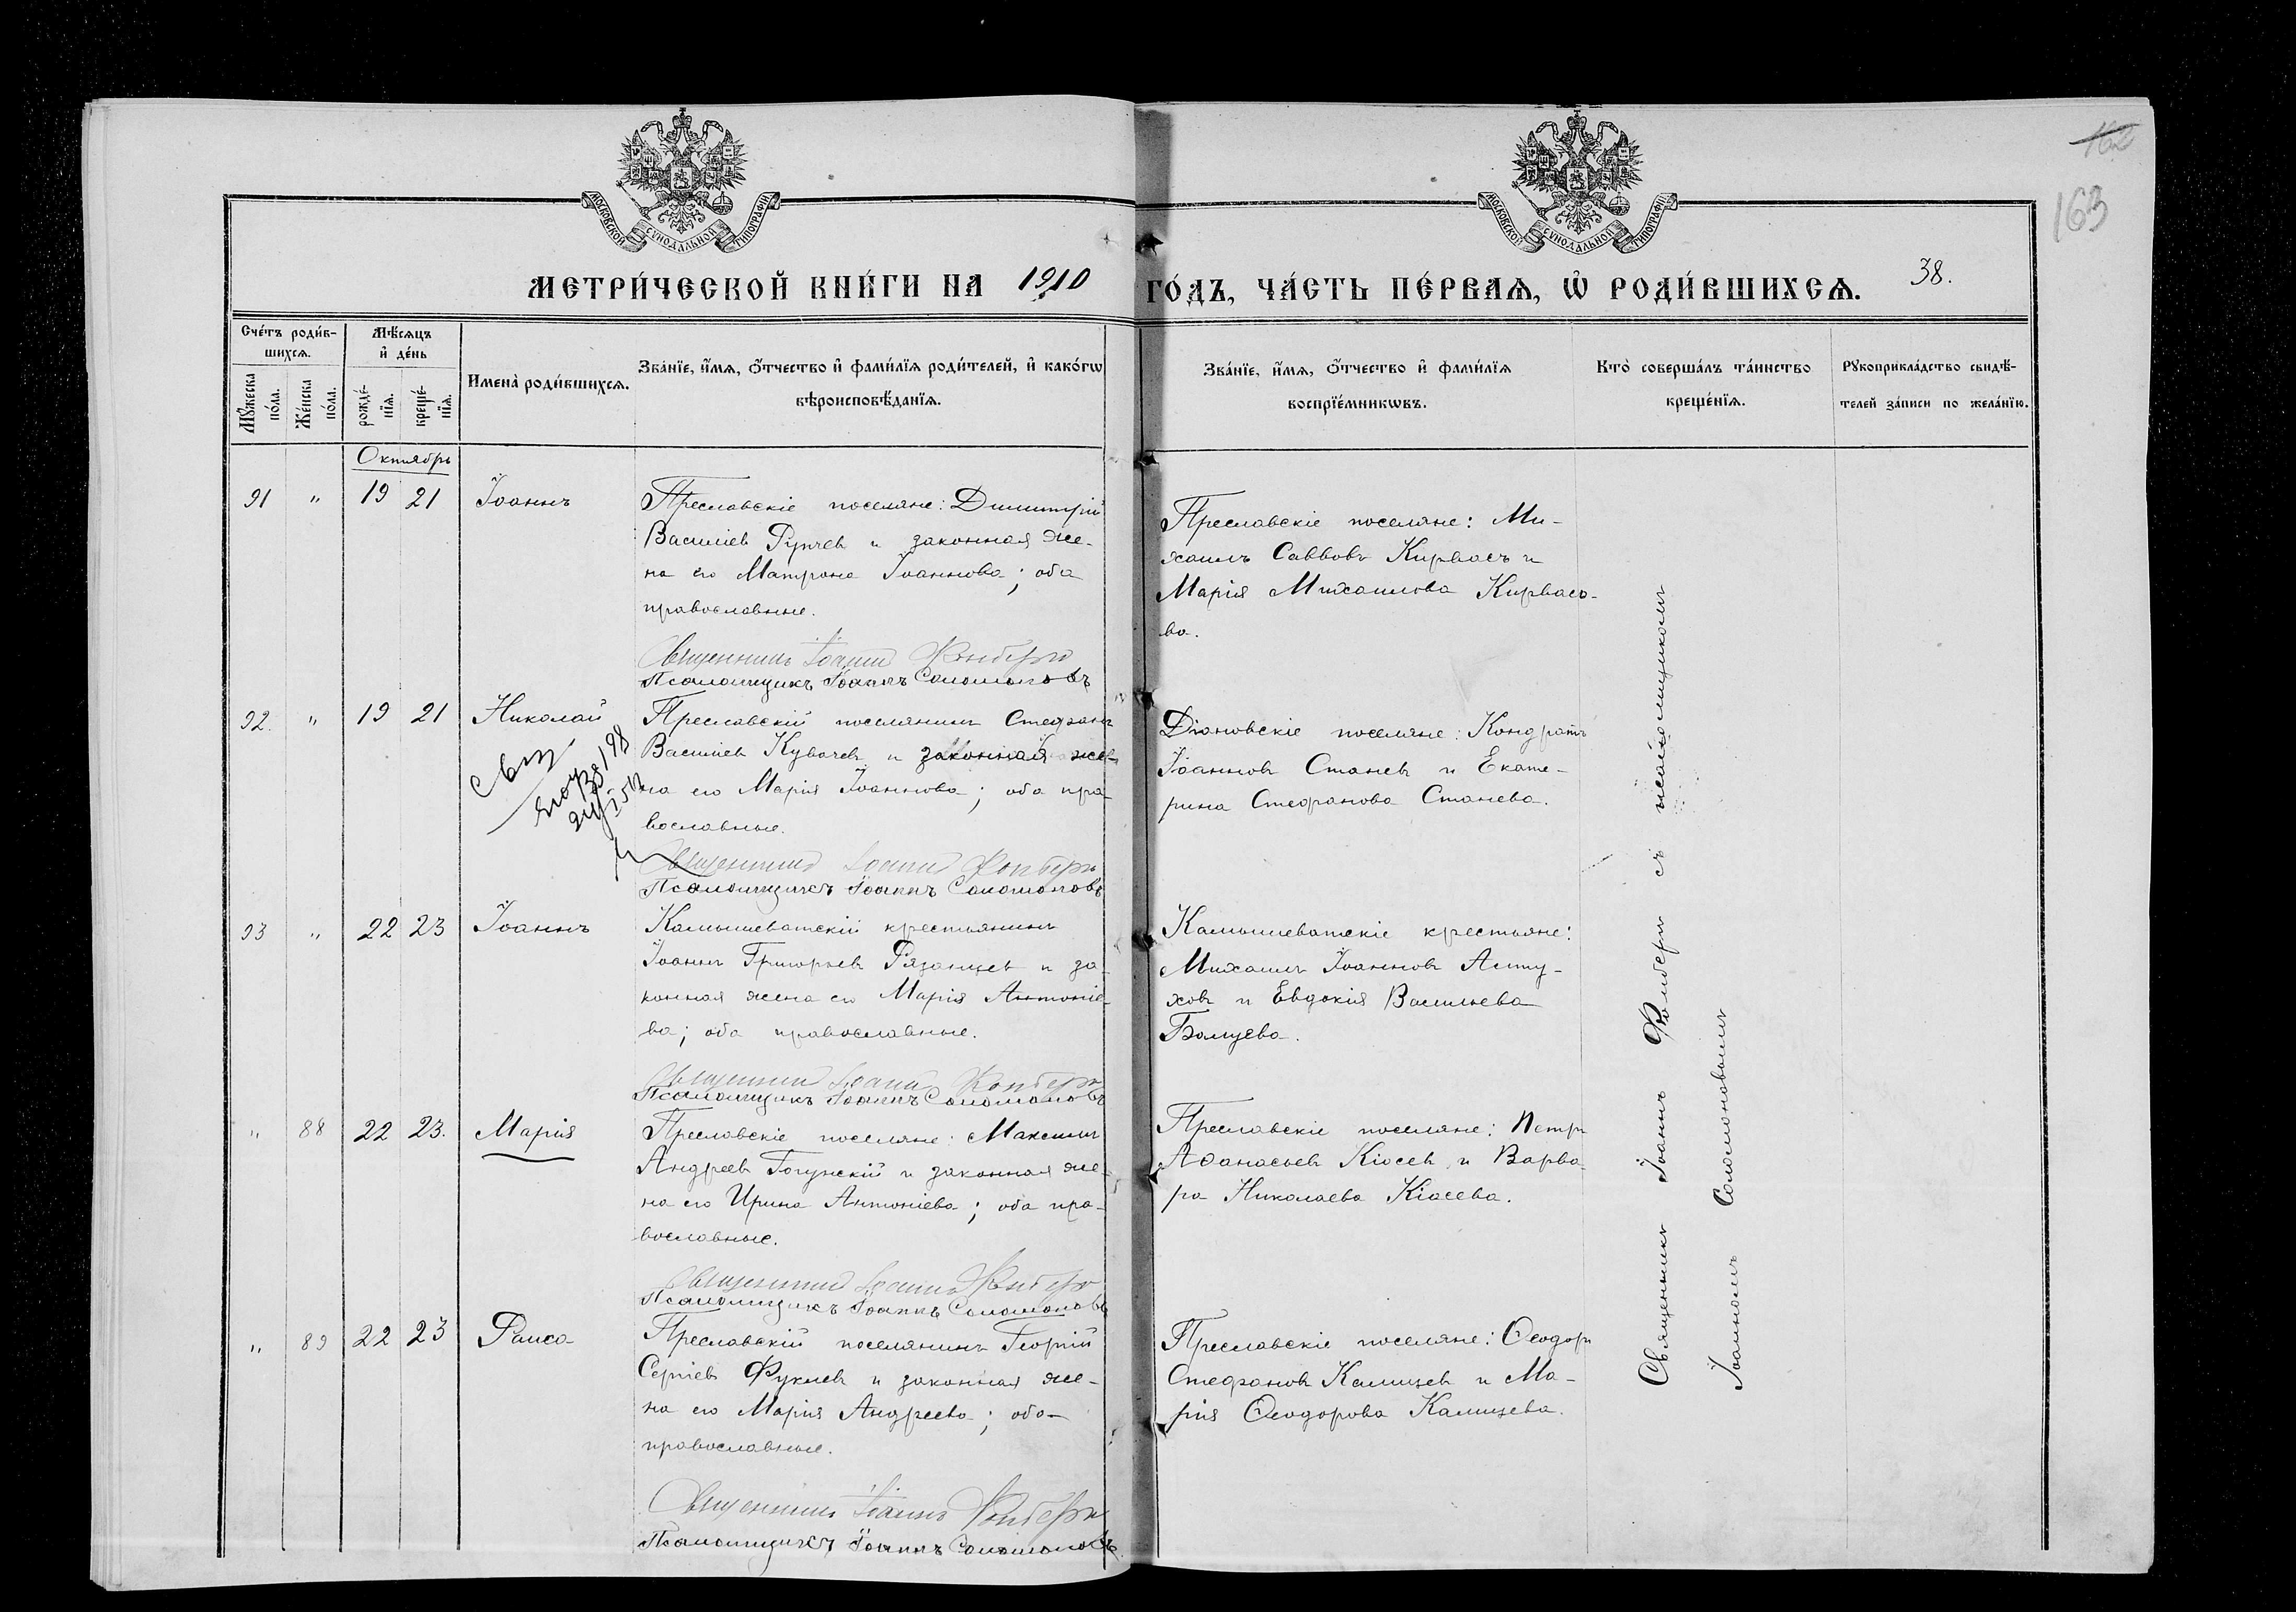 162
163
МОСКОВСКОЙ СУНОДАЛЬНОЙ ТИПОГРАФІИ
МОСКОВСКОЙ СУНОДАЛЬНОЙ ТИПОГРАФІИ
МЕТРИ́ЧЕСКОЙ КНИ́ГИ НА 1910 ГО́ДЪ, ЧА́СТЬ ПЕ́РВАѦ, Ѡ҆ РОДИ́ВШИХСѦ. 38.
Сче́тъ роди́в-
шихсѧ.
Мꙋ́жеска
по́ла.
Же́нска
по́ла.
Мѣ́сѧцъ
и҆ де́нь
рожде́-
нїѧ.
креще́-
нїѧ.
Имена̀ роди́вшихсѧ.
Зва́нїе, и҆́мѧ, ѻ҆́тчество и҆ фами́лїѧ роди́телей, и҆ како́гѡ
вѣроисповѣ́данїѧ.
Зва́нїе, и҆́мѧ, ѻ҆́тчество и҆ фами́лїѧ
воспрїе́мникѡвъ.
Кто̀ соверша́лъ та́инство
креще́нїѧ.
Рꙋкоприкла́дство свидѣ́-
телей за́писи по жела́нїю.
Октябрь
91 " 19 21 Іоаннъ
Преславскіе поселяне: Димитрій
Василіевъ Рупчевъ и законная же-
на его Матрона Іоаннова; оба
православные.
Священникъ Іоаннъ
Псаломщикъ Іоаннъ Соломоновъ
Преславскіе поселяне: Ми-
хаилъ Саввовъ Кирвасъ и
Марія Михаилова Кирвасо-
ва.
92. " 19 21 Николай
Преславскій поселянинъ Стефанъ
Василіевъ Кувачевъ и законная же-
на его Марія Іоаннова; оба пра-
вославные.
Священникъ Іоаннъ
Псаломщикъ Іоаннъ Соломоновъ
Діановскіе поселяне: Кондратъ
Іоанновъ Станевъ и Екате-
рина Стефанова Станева.
93 " 22 23 Іоаннъ
Камышеватскій крестьянинъ
Іоаннъ Григорьевъ Рязанцевъ и за-
конная жена его Марія Антоніе-
ва; оба православные.
Священникъ Іоаннъ
Псаломщикъ Іоаннъ Соломоновъ
Камышеватскіе крестьяне:
Михаилъ Іоанновъ Алту-
ховъ и Евдокія Васильева
" 88 22 23. Марія
Преславскіе поселяне: Максимъ
Андреевъ Гогунскій и законная же-
на его Ирина Антоніева; оба пра-
вославные.
Священникъ Іоаннъ
Псаломщикъ Іоаннъ Соломоновъ
Преславскіе поселяне: Петръ
Аѳанасьевъ Кіосевъ и Варва-
ра Николаева Кіосева.
" 89 22 23 Раиса
Преславскій поселянинъ Георгій
Сергіевъ Фуклевъ и законная же-
на его Марія Андреева; оба
православные.
Священникъ Іоаннъ
Псаломщикъ Іоаннъ Соломоновъ
Преславскіе поселяне: Ѳеодоръ
Стефановъ Калицевъ и Ма-
рія Ѳеодорова Калицева.
Священникъ Іоаннъ съ псаломщикомъ
Іоанномъ Соломоновымъ